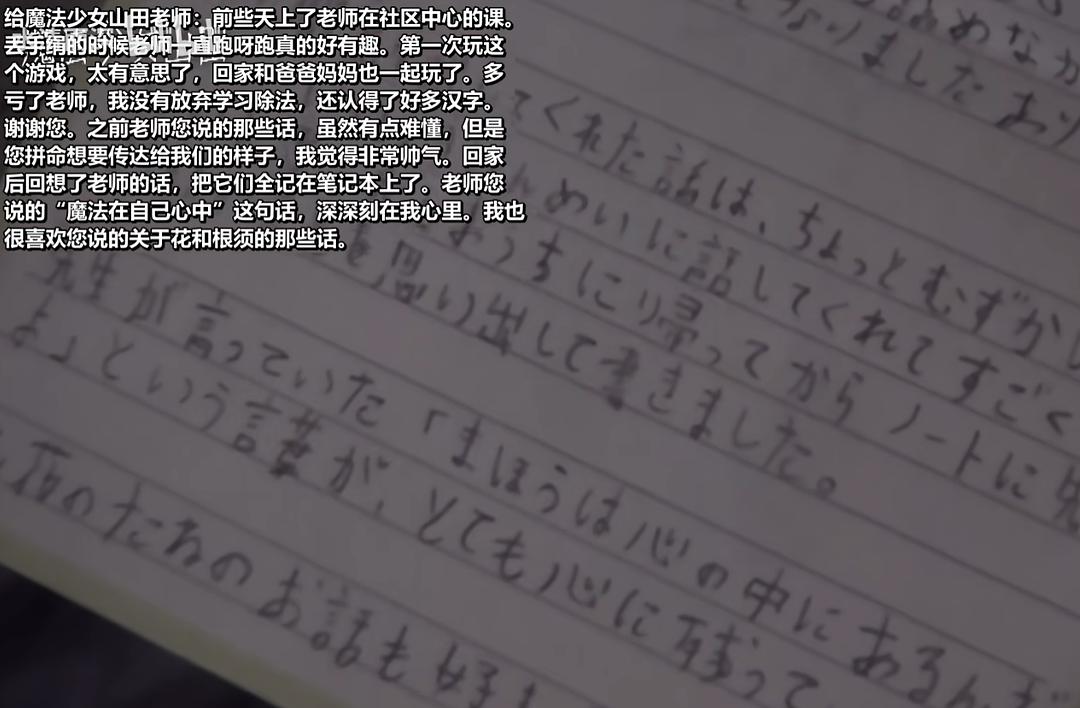 给魔法少女山田老师：前些天上了老师在社区中心的课。
丢手绢的时候老师一直跑呀跑真的好有趣。第一次玩这
个游戏，太有意思了，回家和爸爸妈妈也一起玩了。多
亏了老师，我没有放弃学习除法，还认得了好多汉字。
谢谢您。之前老师您说的那些话，虽然有点难懂，但是
您拼命想要传达给我们的样子，我觉得非常帅气。回家
后回想了老师的话，把它们全记在笔记本上了。老师您
说的“魔法在自己心中”这句话，深深刻在我心里。我也
很喜欢您说的关于花和根须的那些话。
なりました あり
てくれた話は、ちょっとむずかし
めいに話してくれてすごく
おうちに帰ってからノートに
を思い出して書きました。
先生が言っていた「まほうは心の中にあるん
よ」という言葉が、とても心に残って
花のたねのお話も好き